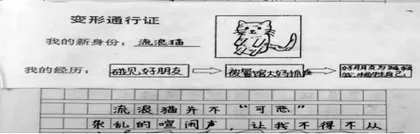 变形通行证
我的新身份：流浪猫
我的经历：碰见好朋友 被餐馆大妈抓住 好朋友为
流浪猫并不“可恶”
杂乱的喧闹声，让我不得不从